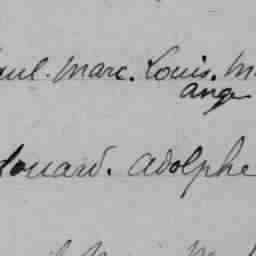 aul. Marc. Louis. M
ange
douard. adolphe